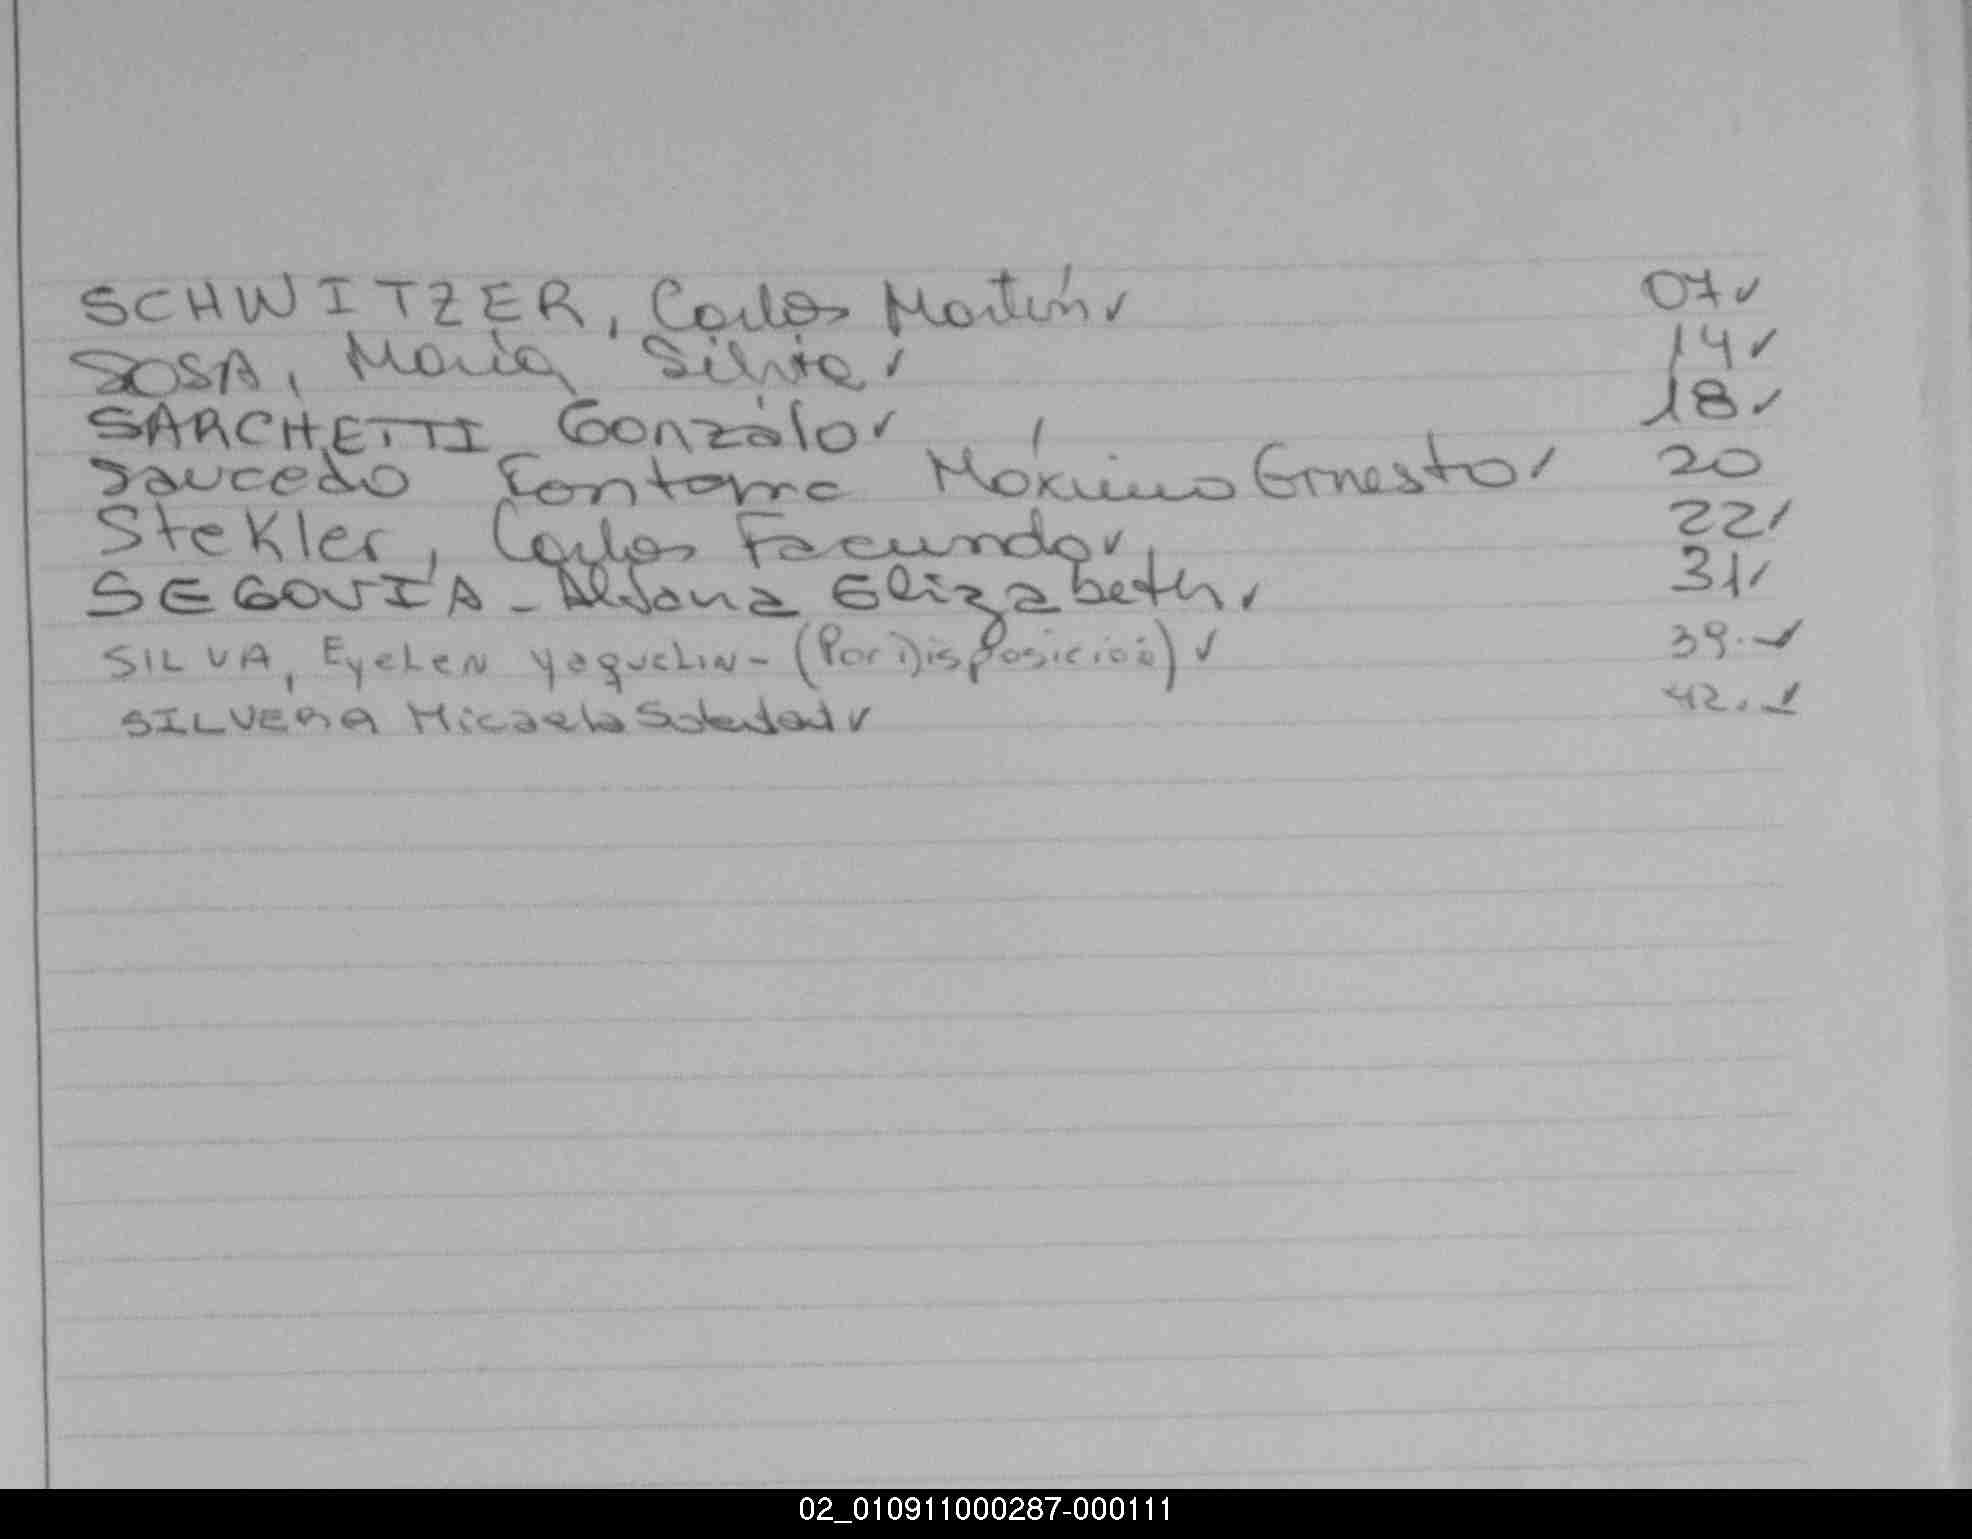 SCHWITZER, Carlos Martín ✓ 07 ✓
SOSA, María Silvia ✓ 14 ✓
SARCHETTI Gonzálo ✓ 18 ✓
Saucedo Fontama Máximo Ernesto ✓ 20
Stekler, Carlos Facundo ✓ 22 ✓
SEGOVIA - Aldana Elizabeth ✓ 31 ✓
SILVA, Eyelen yaquelin - (Por Disposición) ✓ 39. ✓
SILVERA Micaela Soledad ✓ 42. ✓
02_010911000287-000111